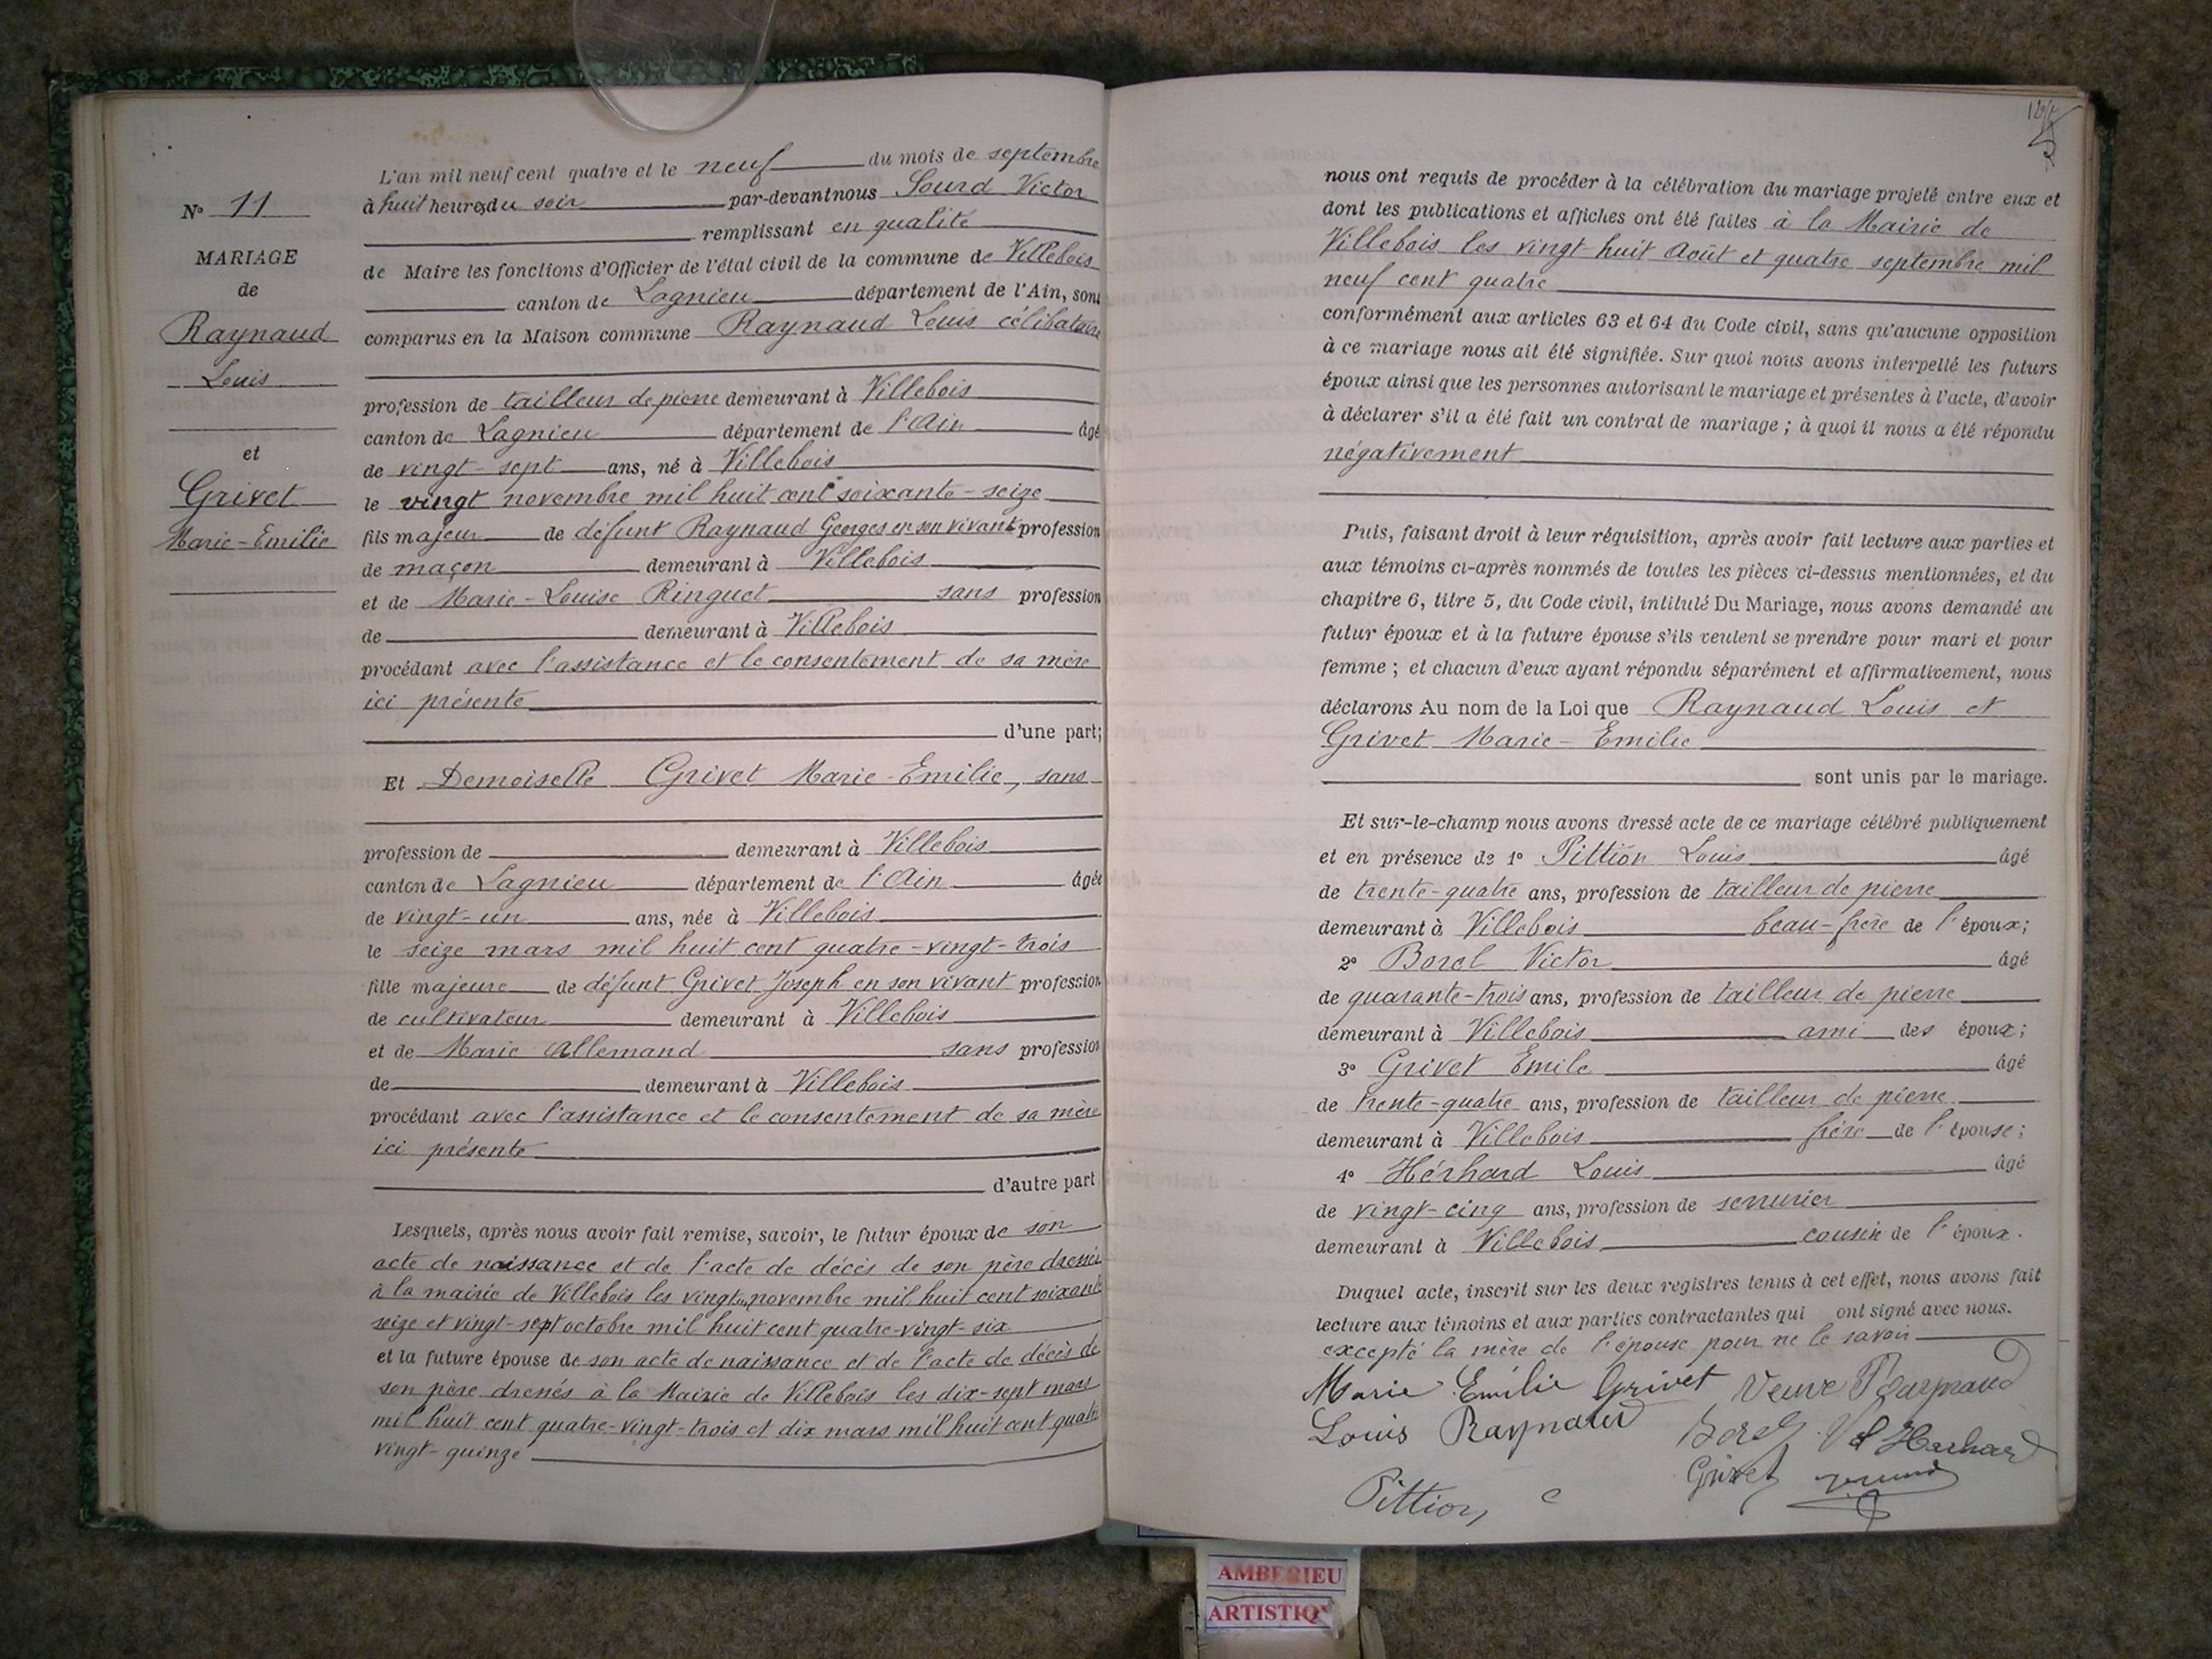 N° 11
MARIAGE
de
Raynaud
Louis
et
Grivet
Marie-Emilie
L'an mil neuf cent quatre et le neuf du mois de septembre
à huit heures du soir par-devant nous Sourd Victor
remplissant en qualité
de Maire les fonctions d'Officier de l'état civil de la commune de Villebois
canton de Lagnieu département de l'Ain, sont
comparus en la Maison commune Raynaud Louis célibataire
profession de tailleur de pierre demeurant à Villebois
canton de Lagnieu département de l'Ain âgé
de vingt-sept ans, né à Villebois
le vingt novembre mil huit cent soixante-seize
fils majeur de défunt Raynaud Georges en son vivant profession
de maçon demeurant à Villebois
et de Marie-Louise Ringuet sans profession
de demeurant à Villebois
procédant avec l'assistance et le consentement de sa mère
ici présente
d'une part;
Et Demoiselle Grivet Marie-Emilie, sans
profession de demeurant à Villebois
canton de Lagnieu département de l'Ain âgée
de vingt-un ans, née à Villebois
le seize mars mil huit cent quatre-vingt-trois
fille majeure de défunt Grivet Joseph en son vivant profession
de cultivateur demeurant à Villebois
et de Marie Allemand sans profession
de demeurant à Villebois
procédant avec l'assistance et le consentement de sa mère
ici présente
d'autre part
Lesquels, après nous avoir fait remise, savoir, le futur époux de son
acte de naissance et de l'acte de décès de son père dressés
à la mairie de Villebois les vingt novembre mil huit cent soixante
seize et vingt-sept octobre mil huit cent quatre-vingt-six
et la future épouse de son acte de naissance et de l'acte de décès de
son père dressés à la Mairie de Villebois les dix-sept mars
mil huit cent quatre-vingt-trois et dix mars mil huit cent quatre
vingt-quinze
nous ont requis de procéder à la célébration du mariage projeté entre eux et
dont les publications et affiches ont été faites à la Mairie de
Villebois les vingt-huit Août et quatre septembre mil
neuf cent quatre
conformément aux articles 63 et 64 du Code civil, sans qu'aucune opposition
à ce mariage nous ait été signifiée. Sur quoi nous avons interpellé les futurs
époux ainsi que les personnes autorisant le mariage et présentes à l'acte, d'avoir
à déclarer s'il a été fait un contrat de mariage; à quoi il nous a été répondu
négativement
Puis, faisant droit à leur réquisition, après avoir fait lecture aux parties et
aux témoins ci-après nommés de toutes les pièces ci-dessus mentionnées, et du
chapitre 6, titre 5, du Code civil, intitulé Du Mariage, nous avons demandé au
futur époux et à la future épouse s'ils veulent se prendre pour mari et pour
femme; et chacun d'eux ayant répondu séparément et affirmativement, nous
déclarons Au nom de la Loi que Raynaud Louis et
Grivet Marie-Emilie
sont unis par le mariage.
Et sur-le-champ nous avons dressé acte de ce mariage célébré publiquement
et en présence de 1° Pittion Louis âgé
de trente-quatre ans, profession de tailleur de pierre
demeurant à Villebois beau-frère de l'époux;
2° Borel Victor âgé
de quarante-trois ans, profession de tailleur de pierre
demeurant à Villebois ami des époux;
3° Grivet Emile âgé
de trente-quatre ans, profession de tailleur de pierre
demeurant à Villebois frère de l'épouse;
4° Hérhard Louis âgé
de vingt-cinq ans, profession de serrurier
demeurant à Villebois cousin de l'époux.
Duquel acte, inscrit sur les deux registres tenus à cet effet, nous avons fait
lecture aux témoins et aux parties contractantes qui ont signé avec nous.
excepté la mère de l'épouse pour ne le savoir
Marie Emilie Grivet Veuve Raynaud
Louis Raynaud Borel V Herhard
Grivet
Pittion
AMBERIEU
ARTISTIQ